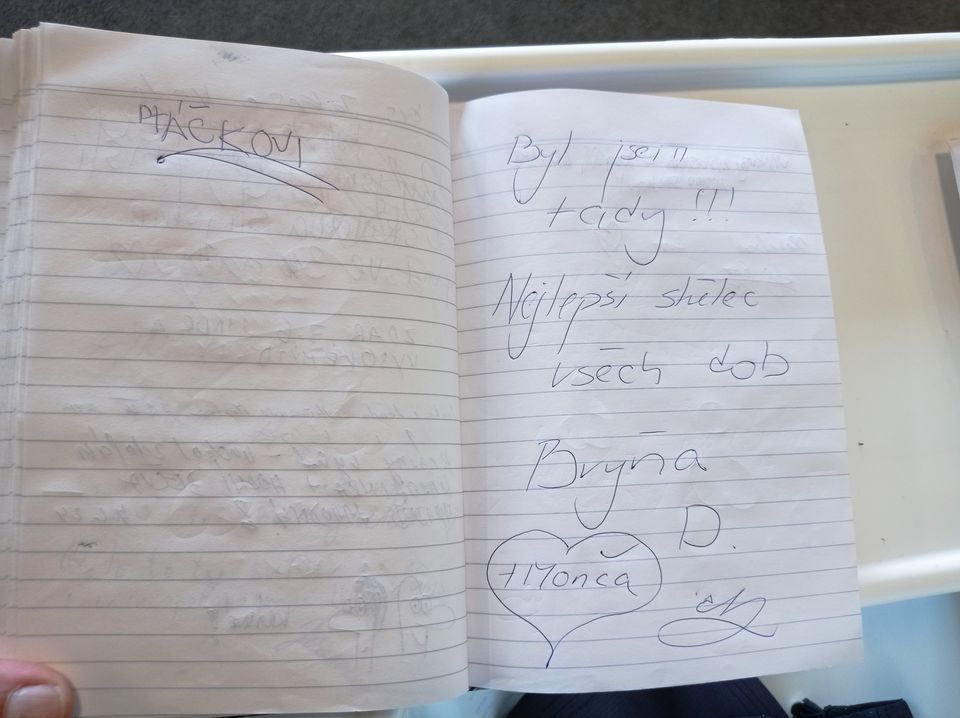 PtÁČKOVI
Byl jsem
tady !!!
Nejlepší střelec
všech dob
Bryňa
D.
+ Monča